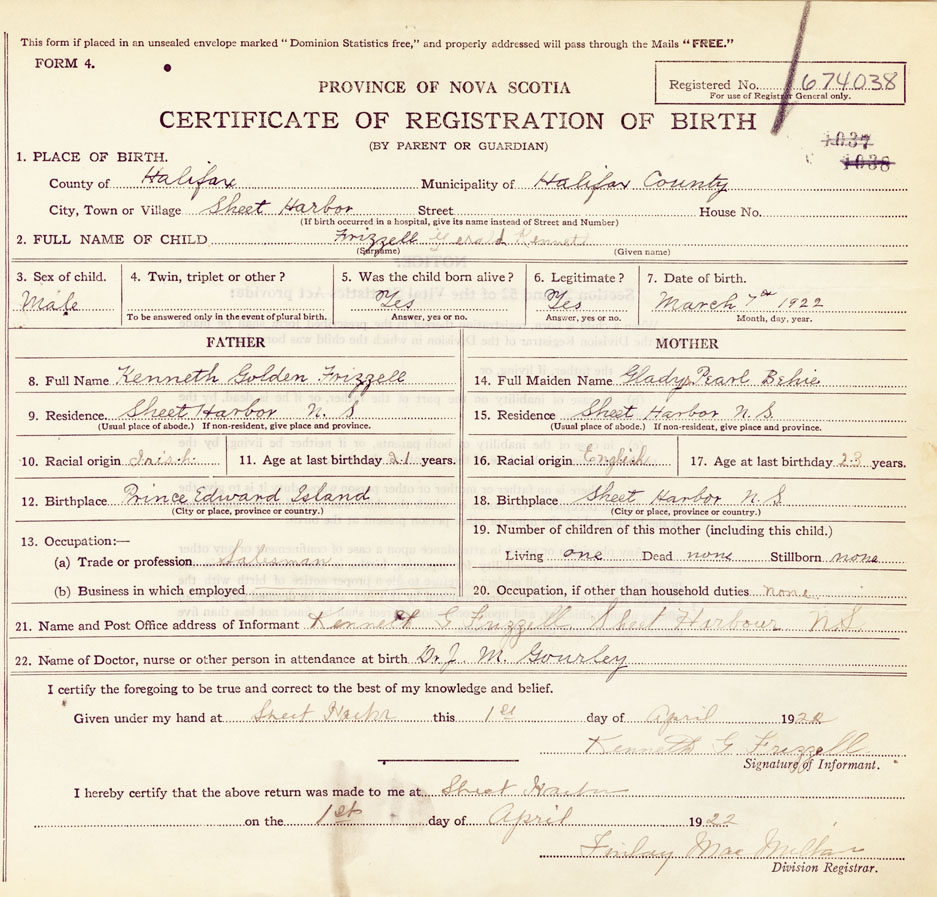 This form if placed in an unsealed envelope marked "Dominion Statistics free," and properly addressed will pass through the Mails "FREE."
FORM 4.
PROVINCE OF NOVA SCOTIA
Registered No. 674038
For use of Registrar General only.
CERTIFICATE OF REGISTRATION OF BIRTH
(BY PARENT OR GUARDIAN)
1037
1038
1. PLACE OF BIRTH.
County of Halifax Municipality of Halifax County
City, Town or Village Sheet Harbor Street House No.
(If birth occurred in a hospital, give its name instead of Street and Number)
2. FULL NAME OF CHILD Frizzell Gerald Kennet
(Surname) (Given name)
3. Sex of child. 4. Twin, triplet or other? 5. Was the child born alive? 6. Legitimate? 7. Date of birth.
Male Yes Yes March 7th 1922
To be answered only in the event of plural birth. Answer, yes or no. Answer, yes or no. Month, day, year.
FATHER MOTHER
8. Full Name Kenneth Golden Frizzell 14. Full Maiden Name Gladys Pearl Behie
9. Residence. Sheet Harbor N. S 15. Residence Sheet Harbor N. S.
(Usual place of abode.) If non-resident, give place and province. (Usual place of abode.) If non-resident, give place and province.
10. Racial origin Irish 11. Age at last birthday 21 years. 16. Racial origin English 17. Age at last birthday 23 years.
12. Birthplace Prince Edward Island 18. Birthplace Sheet Harbor N. S.
(City or place, province or country.) (City or place, province or country.)
13. Occupation:— 19. Number of children of this mother (including this child.)
(a) Trade or profession Salesman Living one Dead none Stillborn none
(b) Business in which employed 20. Occupation, if other than household duties none
21. Name and Post Office address of Informant Kenneth G Frizzell Sheet Harbour N.S.
22. Name of Doctor, nurse or other person in attendance at birth Dr. J. M. Gourley
I certify the foregoing to be true and correct to the best of my knowledge and belief.
Given under my hand at Sheet Harbor this 1st day of April 1922
Kenneth G Frizzell
Signature of Informant.
I hereby certify that the above return was made to me at Sheet Harbor
on the 1st day of April 1922
Finlay Mac Millan
Division Registrar.